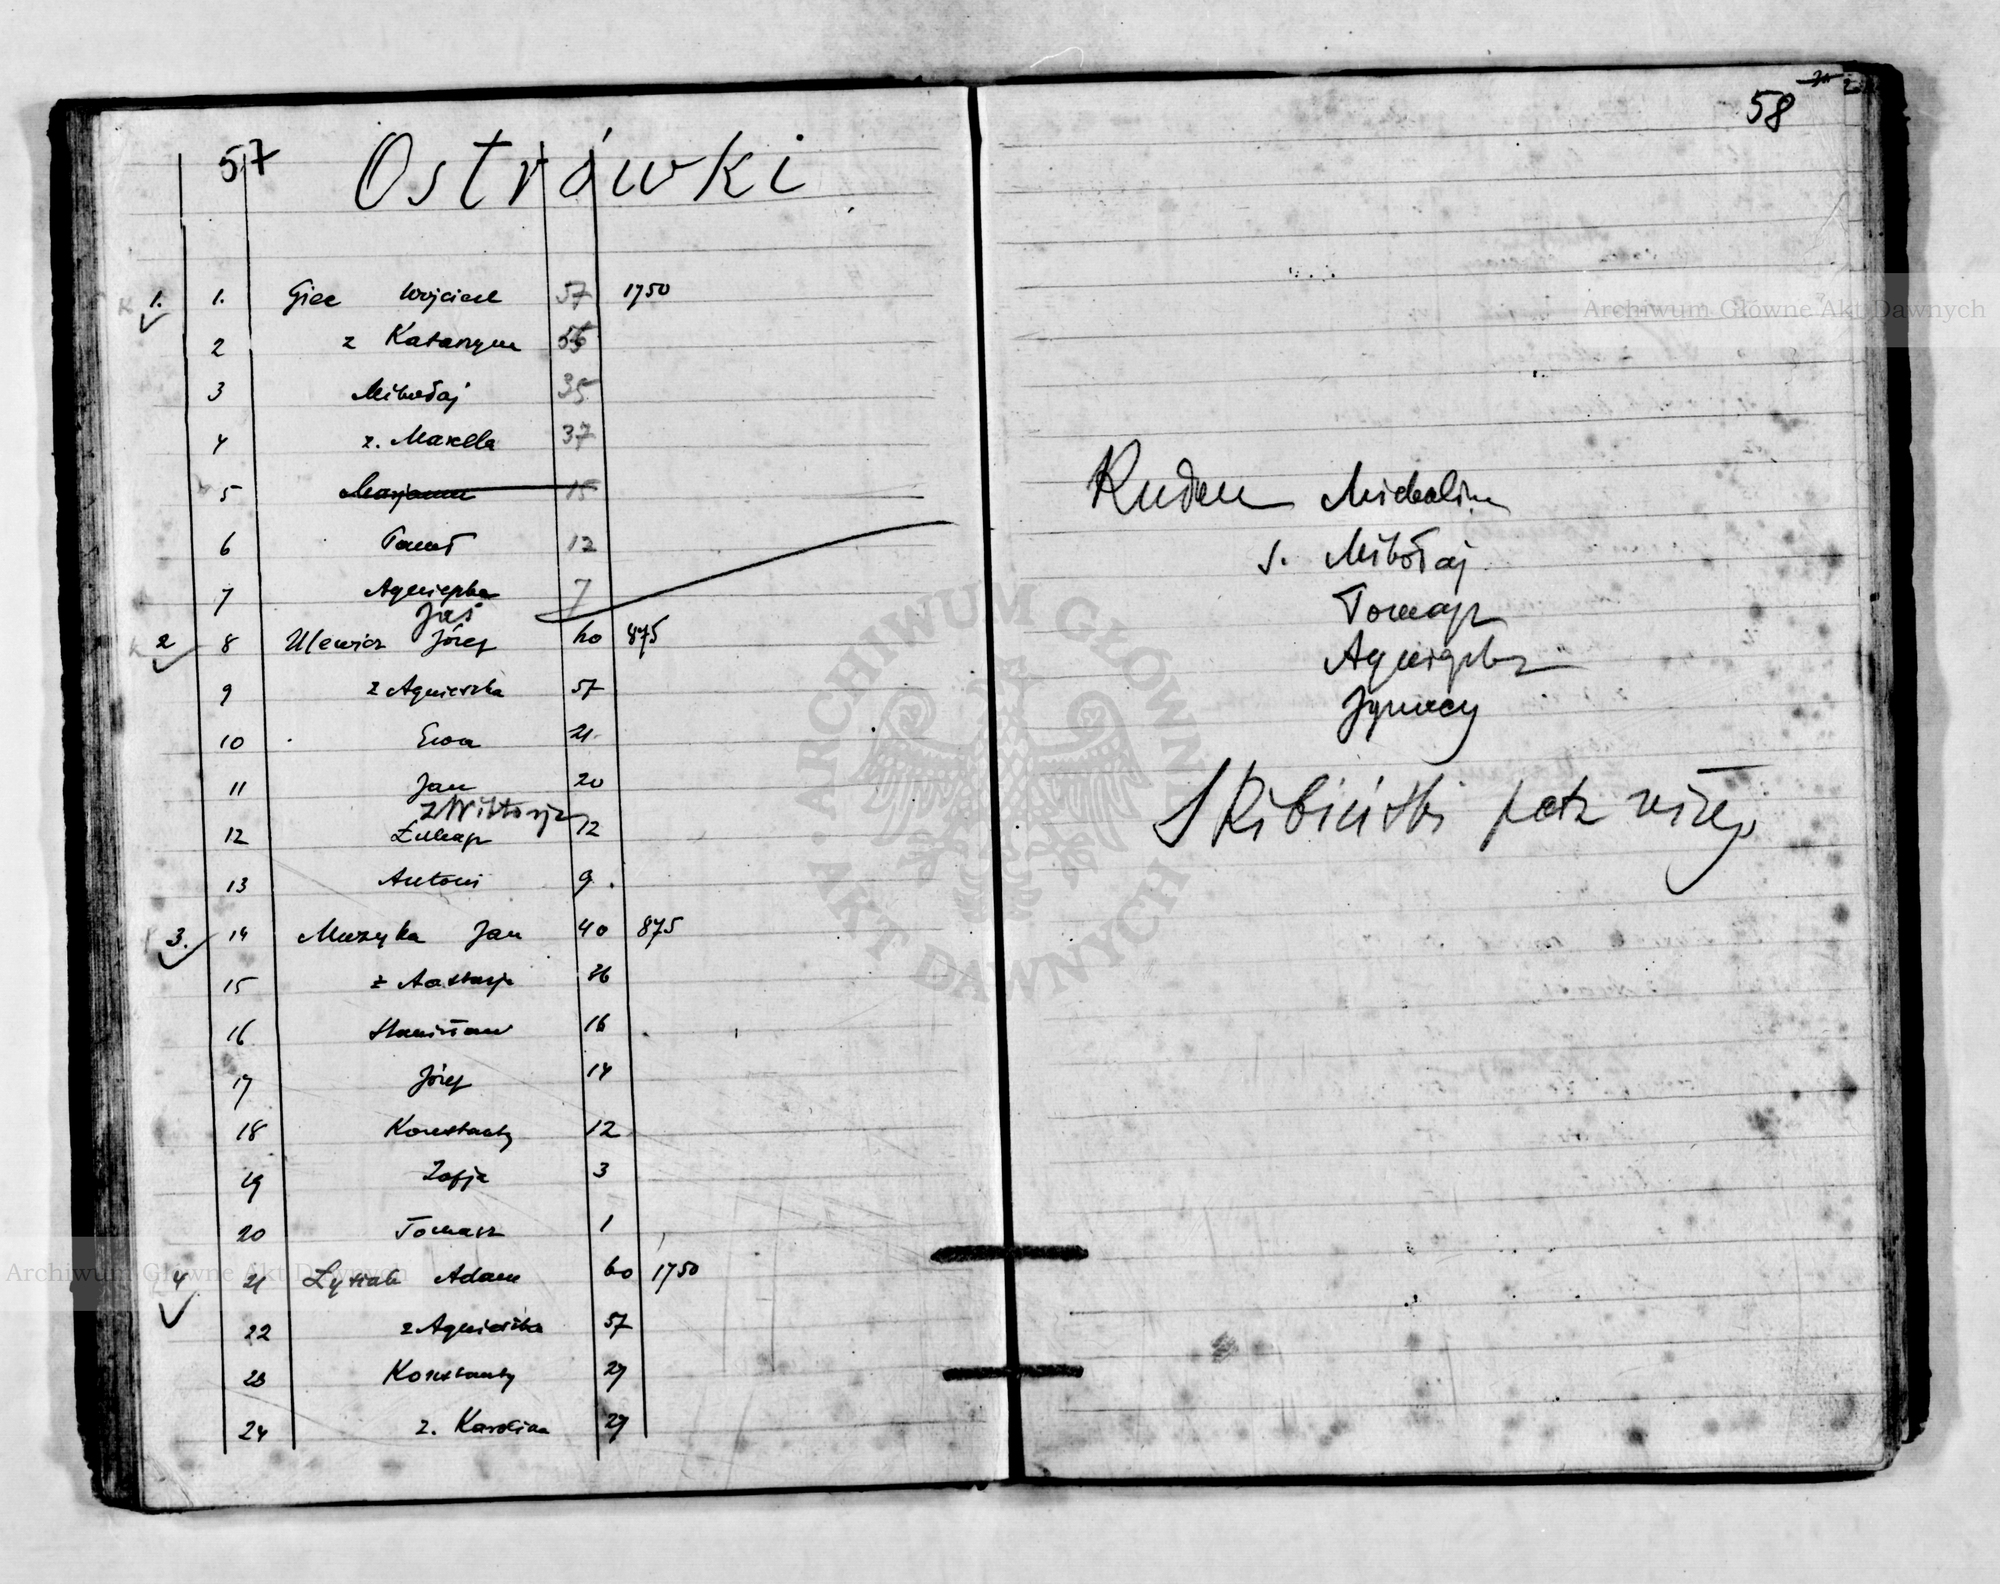 57 Ostrówki
1. 1. Giec Wojciech 57 1750
2 z Katarzyna 56
3 Mikołaj 35
4 z. Marella 37
5 Marjanna 15
6 Paweł 12
7 Agnieszka 7
Jaś
2 8 Ulewicz Józef 60 875
9 z Agnieszka 57
10 Ewa 21
11 Jan 20
z Wiktorja
12 Łukasz 12
13 Antoni 9
3. 14 Muzyka Jan 40 875
15 z Nastazja 36
16 Stanisław 16
17 Józef 14
18 Konstanty 12
19 Zofja 3
20 Tomasz 1
4 21 Łysiak Adam 60 1750
22 z Agnieszka 57
23 Konstanty 29
24 z. Karolina 29
58
Michalina
s. Mikołaj
Tomasz
Agnieszka
Ignacy
Skibiński patrz niżej
Archiwum Główne Akt Dawnych
Archiwum Główne Akt Dawnych
ARCHIWUM GŁÓWNE AKT DAWNYCH